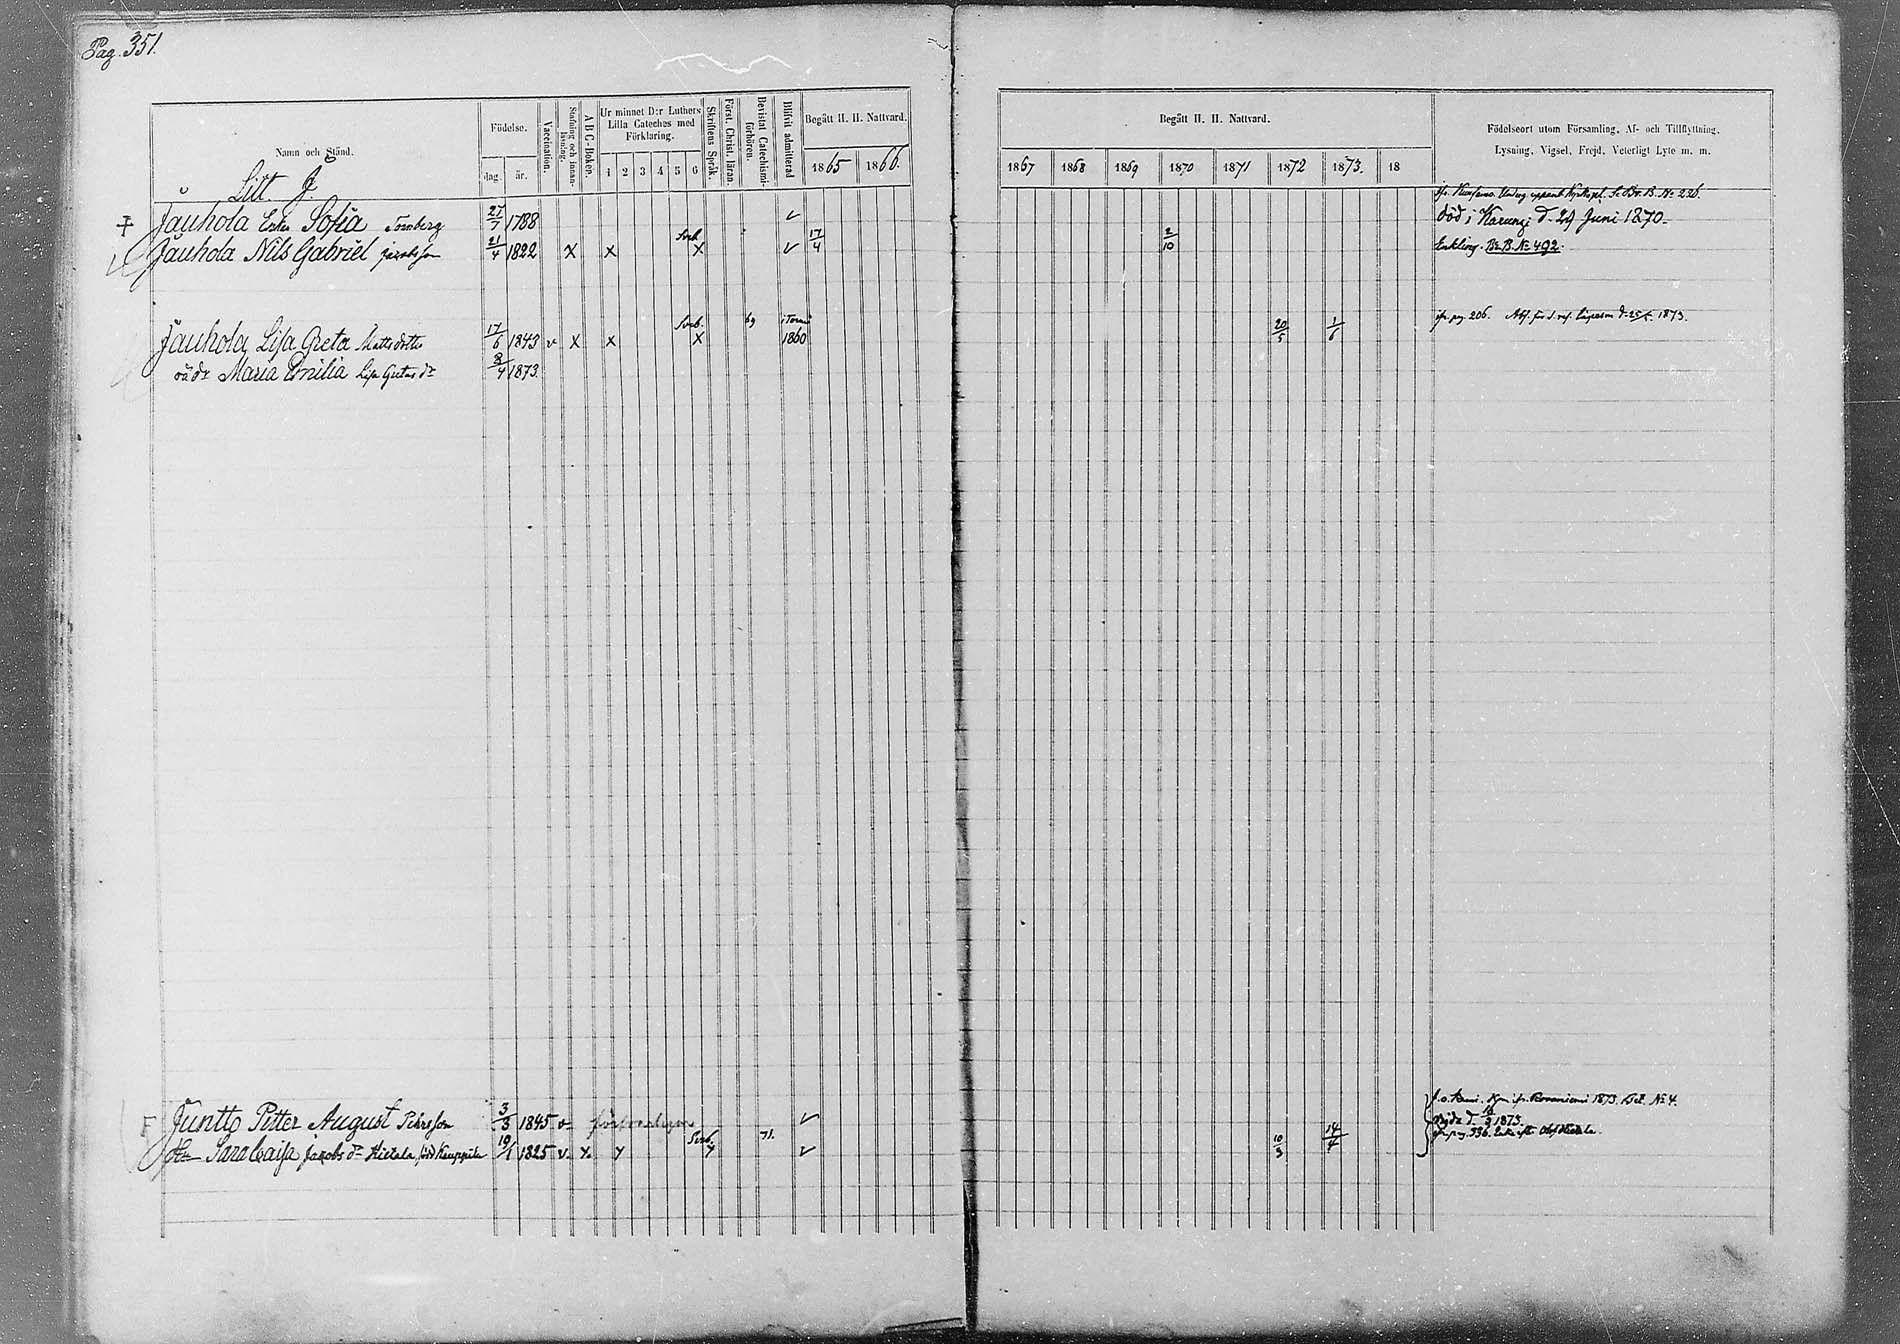 Pag. 351.
Namn och Stånd.
Födelse.
dag. år.
Vaccination.
Stafning och innanläsning.
A B C-Boken.
Ur minnet D:r Luthers Lilla Cateches med Förklaring.
1 2 3 4 5 6
Skriftens Språk.
Först. Christ. läran.
Bevistat Catechismiförhören.
Blifvit admitterad
Begått H. H. Nattvard.
1865 1866.
Begått H. H. Nattvard.
1867 1868 1869 1870 1871 1872 1873. 18
Födelseort utom Församling, Af- och Tillflyttning,
Lysning, Vigsel, Frejd, Veterligt Lyte m. m.
Litt. J.
Jauhola Enka Sofia 27/7 1788 död i Karungi d. 24 Juni 1870.
Jauhola Nils Gabriel Jacobsson 21/4 1822 x x Svek x 17/4 2/10 Enkling. Br. B. No 492.
Jauhola Lisa Greta Mattsdotter 17/6 1843 v x x Svek. x 69 1860 20/5 1/6 pag. 206. 1873.
oä dr Maria Emilia Lisa Gretas dr 8/4 1873.
F Juntto Petter August Pehrsson 3/3 1845 v Rovaniemi 1873. No 4.
Hu Sara Caisa Jacobs dr Hietala född Kauppila 19/1 1825 v x Svek. 71. 10/3 14/4 pag. 336. Enka efter Olof Hietala.